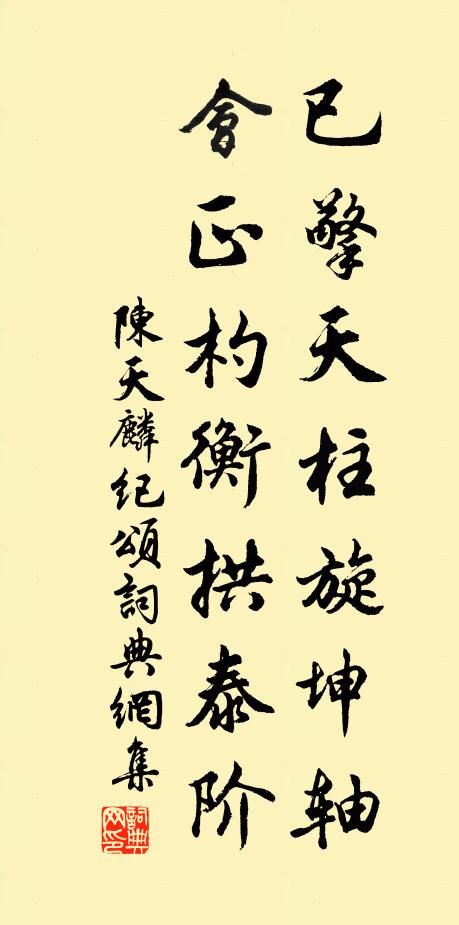 已擎天柱旋坤轴
會正杓衡拱泰阶
陳天麟紀頌詞典網集
詞典网印